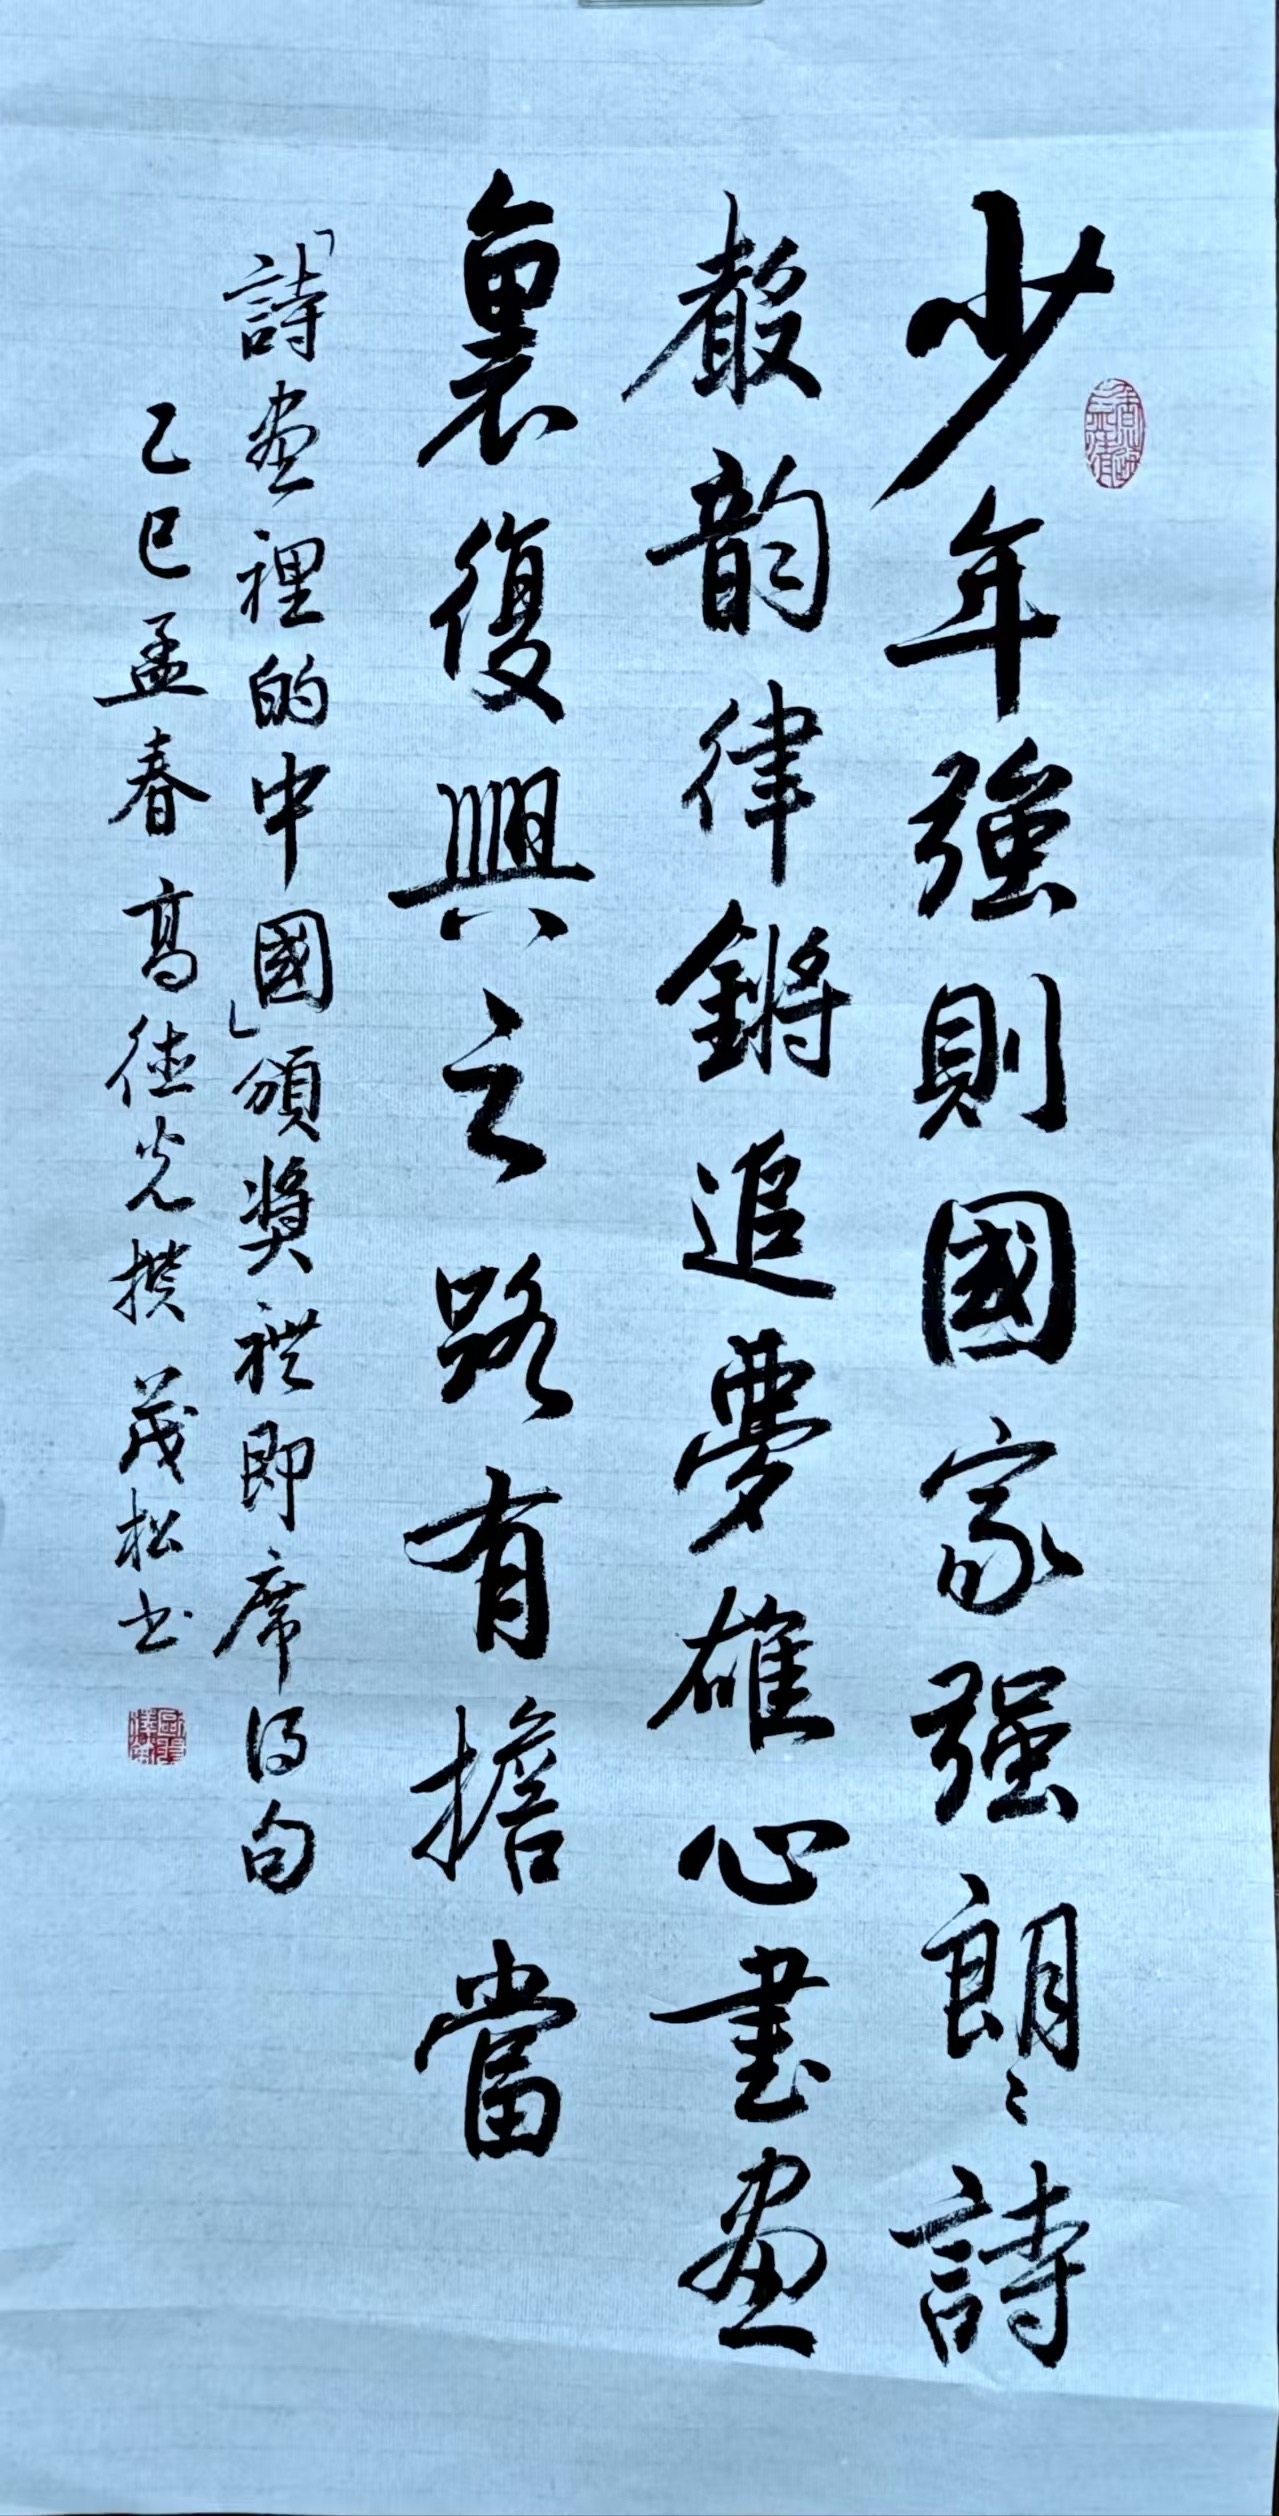 少年強則國家强朗〻詩
聲韵律鏘追夢雄心書畫
裏復興之路有擔當
「詩畫裡的中國」頒奬礼即席得句
乙巳孟春高德光撰茂松书